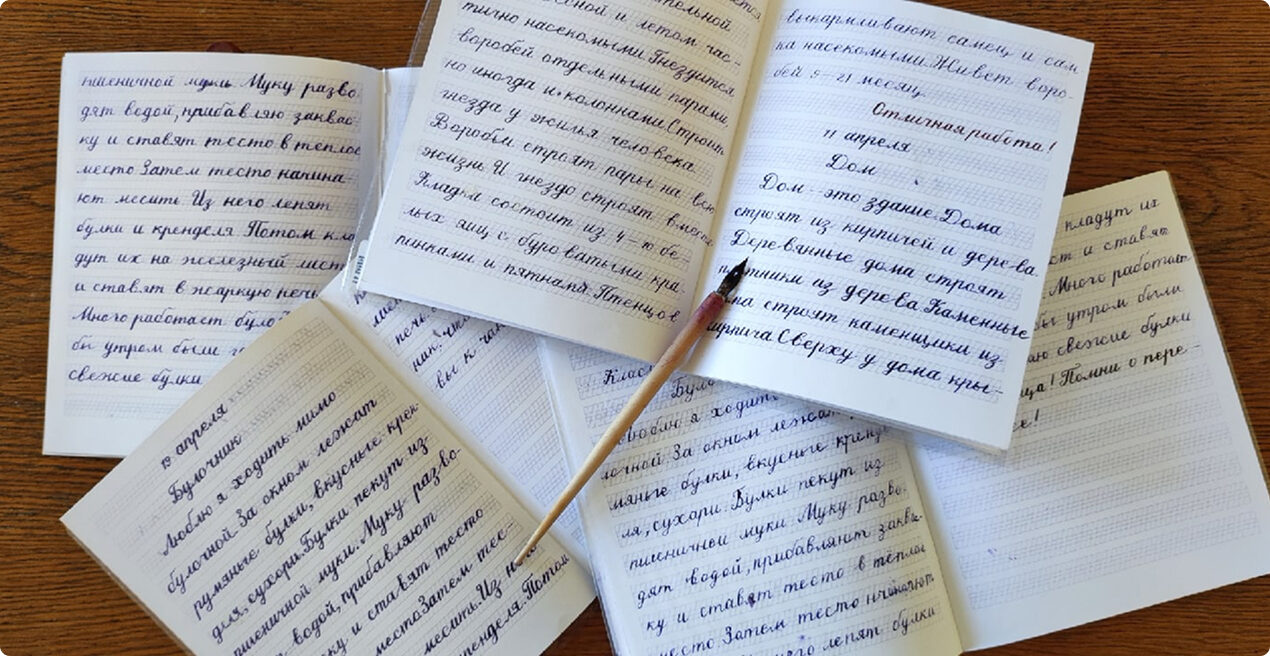 пшеничной муки Муку разво-
дят водой, прибавляю заквас-
ку и ставят тесто в тёплое
место Затем тесто начина-
ют месить Из него лепят
булки и кренделя Потом кла
дут их на железный лист
и ставят в жаркую печь
Много работает
бы утром были
свежие булки
сной и летом час-
тично насекомыми Гнездится
воробей отдельными парами
но иногда и колоннами Строит
гнезда у жилья человека
Воробьи строят пары на всю
жизнь И гнездо строят вместе
Кладка состоит из 4-10 бе
лых яиц с буроватыми кра
пинками и пятнами Птенцов
выкармливают самец и сам
ка насекомыми Живет воро-
бей 9-21 месяц
Отличная работа!
11 апреля
Дом
Дом - это здание Дома
строят из кирпичей и дерева.
Деревянные дома строят
из дерева Каменные
строят каменщики из
кирпича Сверху у дома кры-
кладут их
ст и ставят
Много работает
бы утром были
свежие булки
Помни о пере-
19 апреля
Булочник
Люблю я ходить мимо
булочной За окном лежат
румяные булки, вкусные крен-
деля, сухари. Булки пекут из
пшеничной муки. Муку разво-
водой, прибавляют
ку и ставят тесто
место Затем тес-
месить. Из
кренделя. Потом
печь
ник. что
вы к
Люблю я ходить
лочной За окном лежат
мяные булки, вкусные кренде
ля, сухари Булки пекут из
пшеничной муки Муку разво-
дят водой, прибавляют заквас-
ку и ставят тесто в тёплое
место. Затем тесто начинают
лепят булки